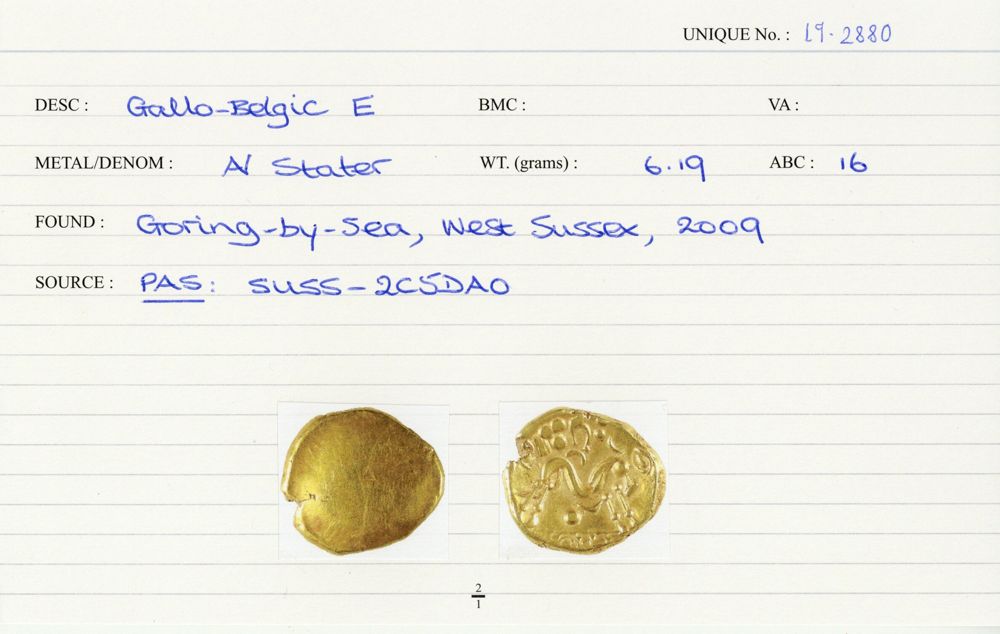 UNIQUE No. : 19.2880
DESC : Gallo-Belgic E BMC : VA :
METAL/DENOM : AV Stater WT. (grams) : 6.19 ABC : 16
FOUND : Goring-by-Sea, West Sussex, 2009
SOURCE : PAS: SUSS-2C5DA0
2
1